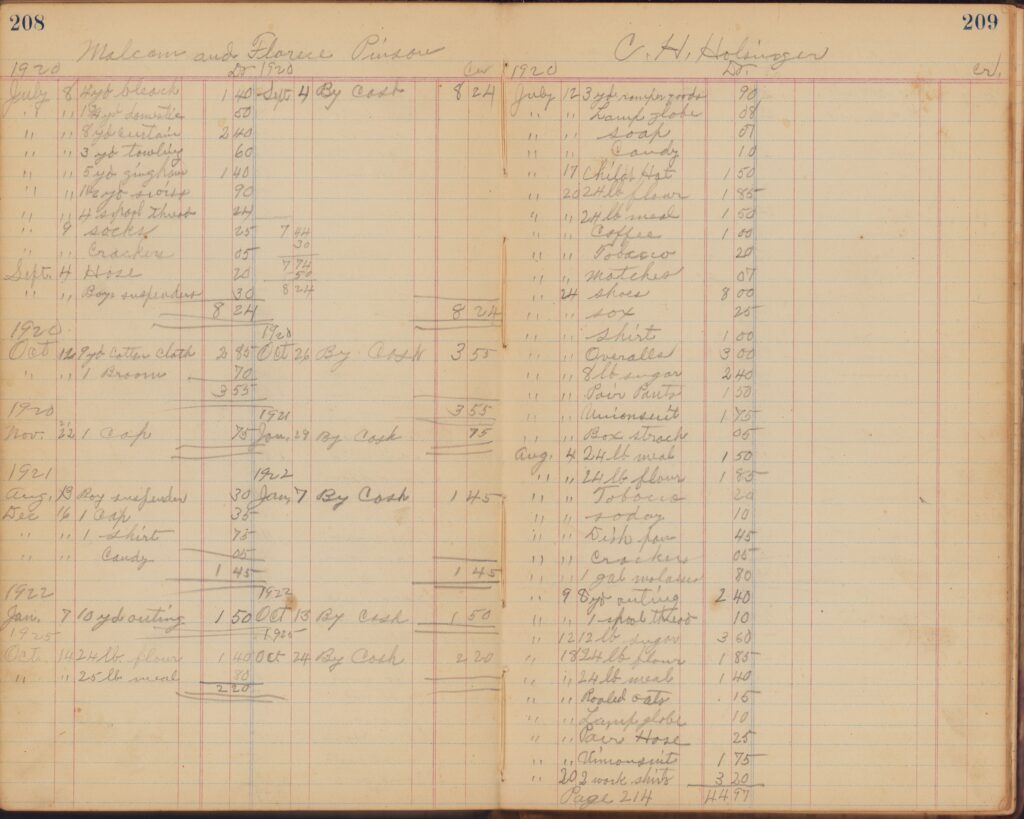 208
Malcom and Florece Pinson
1920 Dr 1920 Cr
July 8 4 yd bleach 1 40 Sept 4 By Cash 8 24
" " yd domestic 50
" " 8 yd curtain 2 40
" " 3 yd towling 60
" " 5 yd gingham 1 40
" " yd swiss 90
" " 4 spool thread 24
" 9 socks 25 7 44
30
" Crackers 05 7 74
Sept. 4 Hose 20 50
" " Boys suspenders 30 8 24
8 24 8 24
1920 1920
Oct 12 9 yd cotton cloth 2 85 Oct 26 By Cash 3 55
" " 1 Broom 70
3 55
1920 1921 3 55
Nov. 22 1 Cap 75 Jan. 29 By Cash 75
1921 1922
Aug. 13 Boy suspender 30 Jan. 7 By Cash 1 45
Dec 16 1 Cap 35
" " 1 Shirt 75
" " Candy 05
1 45 1 45
1922 1922
Jan. 7 10 yd outing 1 50 Oct 13 By Cash 1 50
1925 1925
Oct 14 24 lb flour 1 40 Oct 24 By Cash 2 20
" " 25 lb meal 80
2 20
209
C. H. Holsinger
1920 Dr. cr.
July 12 3 yd romper goods 90
" " Lamp globe 08
" " soap 07
" " Candy 10
" 17 Child's Hat 1 50
" 20 24 lb flour 1 85
" " 24 lb meal 1 50
" " Coffee 1 00
" " Tobacco 20
" " matches 07
" 24 shoes 8 00
" " sox 25
" " shirt 1 00
" " Overalls 3 00
" " 8 lb sugar 2 40
" " Pair Pants 1 50
" " Unionsuit 1 75
" " Box strach 05
Aug. 4 24 lb meal 1 50
" " 24 lb flour 1 85
" " Tobacco 20
" " soday 10
" " Dish pan 45
" " Crackers 05
" " 1 gal molasses 80
" 9 8 yd outing 2 40
" " 1 spool thread 10
" 12 12 lb sugar 3 60
" 18 24 lb flour 1 85
" " 24 lb meal 1 40
" " Rooled oats 15
" " Lamp globe 10
" " Pair Hose 25
" " Unionsuit 1 75
" 20 2 work shirts 3 20
Page 214 44 97